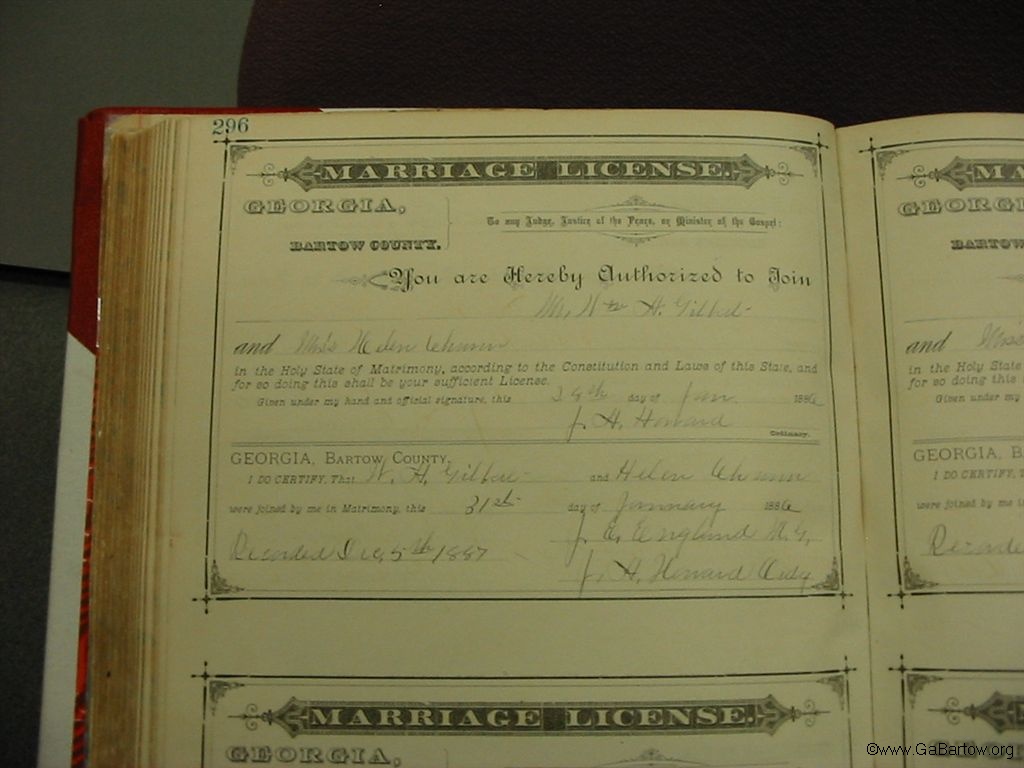 296
MARRIAGE LICENSE.
GEORGIA,
BARTOW COUNTY.
To any Judge, Justice of the Peace, or Minister of the Gospel:
You are Hereby Authorized to Join
Mr. Wm H. Gilbert
and Miss Helen
in the Holy State of Matrimony, according to the Constitution and Laws of this State, and
for so doing this shall be your sufficient License.
Given under my hand and official signature, this 28th day of Jan. 1886
J. H. Howard
Ordinary.
GEORGIA, BARTOW COUNTY.
I DO CERTIFY, That W. H. Gilbert and Helen
were joined by me in Matrimony, this 31st day of January 1886
J. E. England M. G.
Recorded Dec, 5th 1887
J. H. Howard Ordy
MARRIAGE LICENSE.
GEORGIA,
MA
GEORGI
BARTOW
and Miss
in the Holy State
for so doing this
Given under my
GEORGIA, B
I DO CERTIFY, T
were joined by me
©www.GaBartow.org